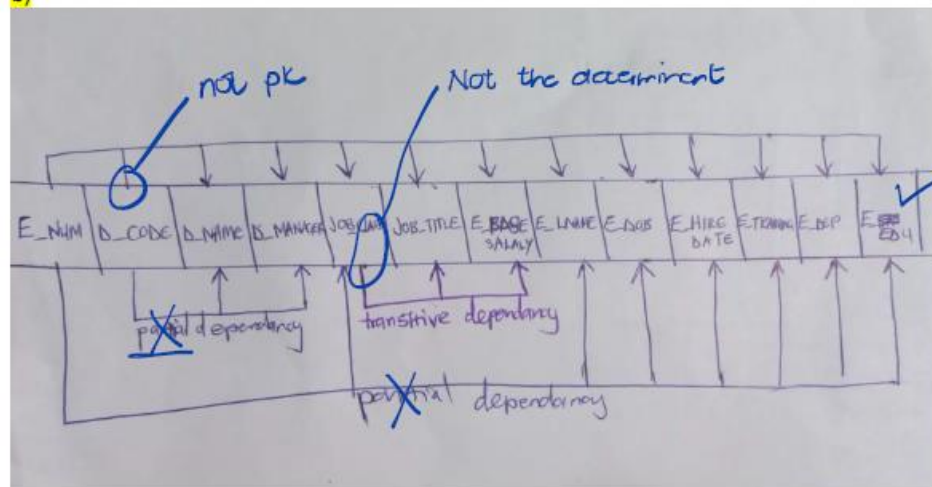 b)
not pk
Not the determinent
E_NUM D_CODE D_NAME D_MANAGER JOB JOB_TITLE E_BASE SALALY E_LNAME E_DOB E_HIRE DATE E_TRAINING E_DEP E_EDU
partial dependancy
transitive dependancy
partial dependancy